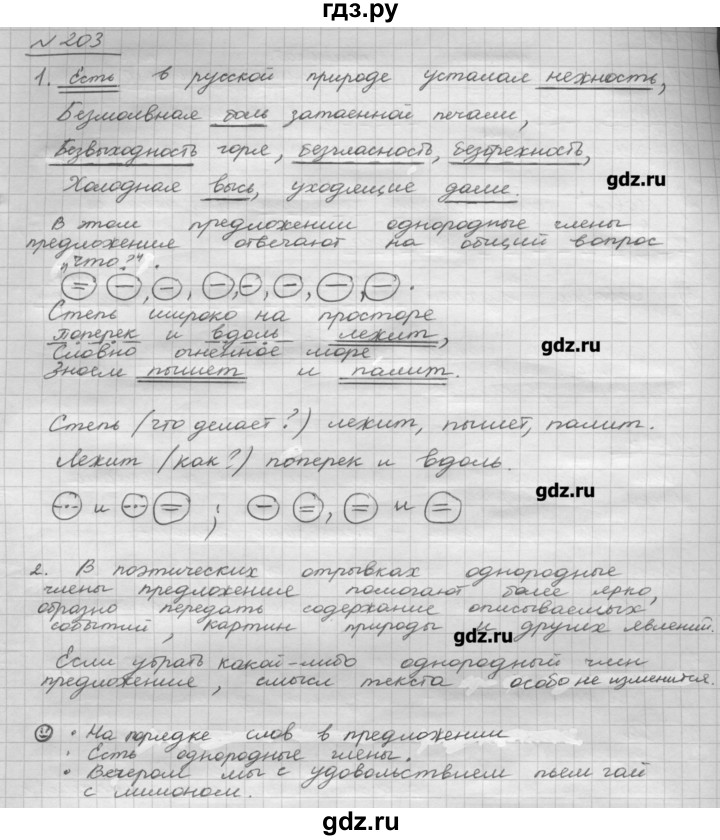 гдз.ру
№ 203
1. Есть в русской природе усталая нежность,
Безмолвная боль затаенной печали,
Безвыходность горя, безгласность, безбрежность,
Холодная высь, уходящие дали.
gdz.ru
В этом предложении однородные члены
предложения отвечают на общий вопрос
„что?".
Степь широко на просторе
поперек и вдоль лежит,
gdz.ru
Словно огненное море
Зноем пышет и палит.
Степь (что делает?) лежит, пышет, палит.
Лежит (как?) поперек и вдоль.
gdz.ru
и ; , и
2. В поэтических отрывках однородные
члены предложения помогают более ярко,
образно передать содержание описываемых
событий, картин природы и других явлений.
gdz.ru
Если убрать какой-либо однородный член
предложения, смысл текста особо не изменится.
• На порядке слов в предложении
• Есть однородные члены.
• Вечером мы с удовольствием пьем чай
с лимоном.
gdz.ru